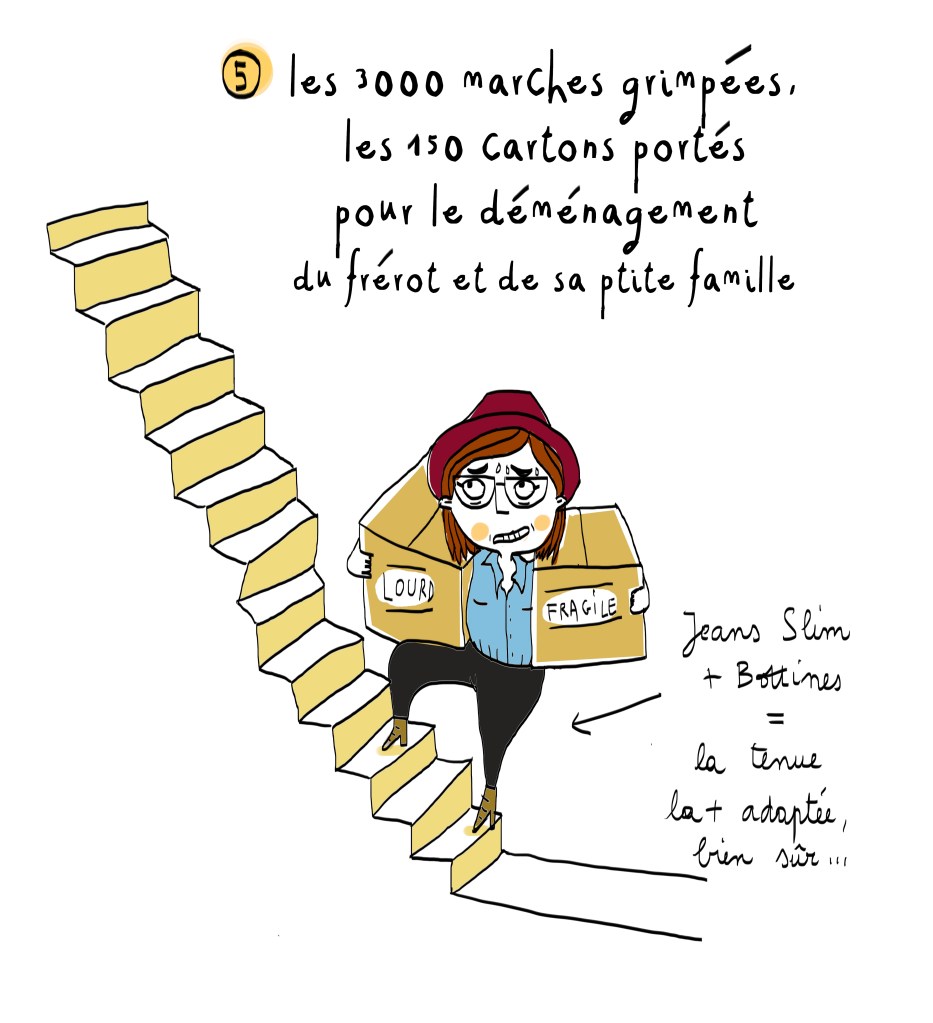 5 les 3000 marches grimpées,
les 150 cartons portés
pour le déménagement
du frérot et de sa ptite famille
LOURD
FRAGILE
Jeans Slim
+ Bottines
=
la tenue
la + adaptée,
bien sûr...